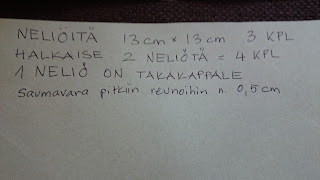 NELIÖITÄ 13cm × 13cm 3 KPL
HALKAISE 2 NELIÖTÄ = 4 KPL
1 NELIÖ ON TAKAKAPPALE
Saumavara pitkiin reunoihin n. 0,5cm